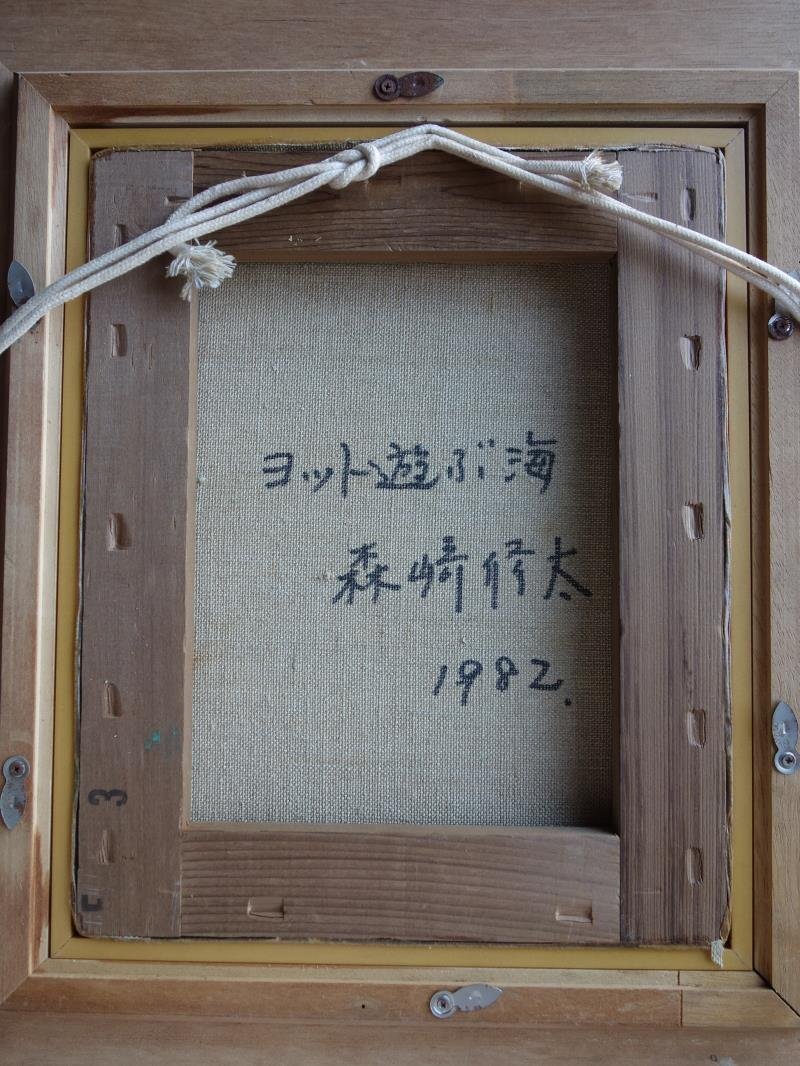 ヨット遊ぶ海
森﨑修太
1982.
3